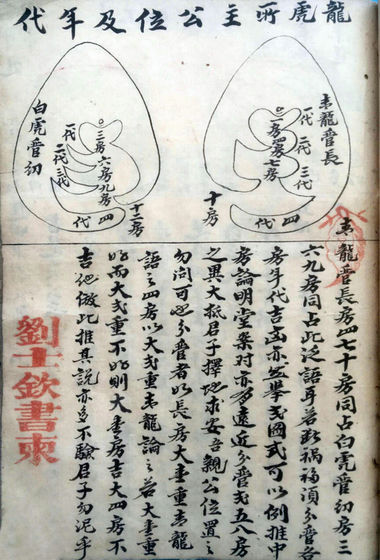 龍虎所主公位及年代
青龍管長
一代
二代
三代
四代
一房四房七房
十房
白虎管幼
一代
二代
三代
四代
三房六房九房
十二房
青龍管長房四七十房同占白虎管幼房三
六九房同占此泛語耳若断禍福須分管各
房年代吉凶亦並舉式圖式可以例推中
房論明堂案对亦多遠近分管式五八房
之異大抵君子擇地求安吾親公位置之
勿问可也分管者以長房大重青龍
語之四房以大式重青龍論之若大重
而大式重不以則大房吉大四房不
吉他倣此推其説亦多不驗君子勿泥乎
劉士欽書柬